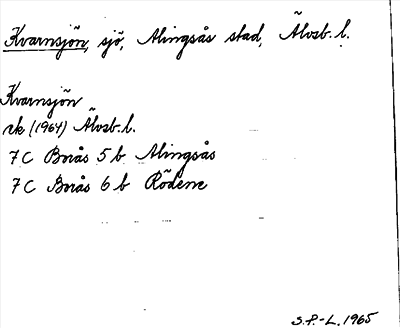 Kvarnsjön, sjö, Alingsås stad, Älvsb. l.
Kvarnsjön
rk (1964) Älvsb. l.
7C Borås 5 b Alingsås
7C Borås 6 b Rödene
S.P.-L. 1965